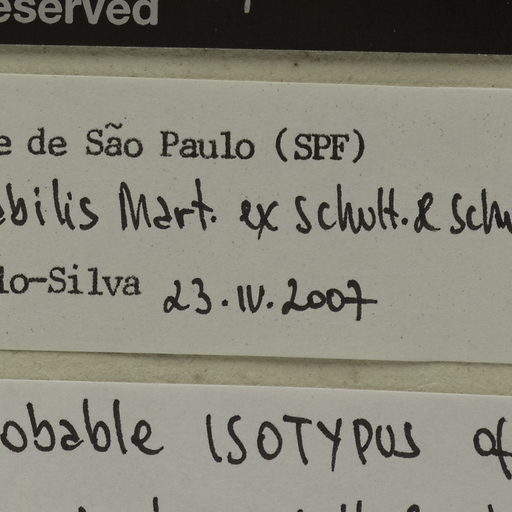 eserved
e de São Paulo (SPF)
abilis Mart. ex Schult. & Schu
lo-Silva 23.IV.2007
obable ISOTYPUS of